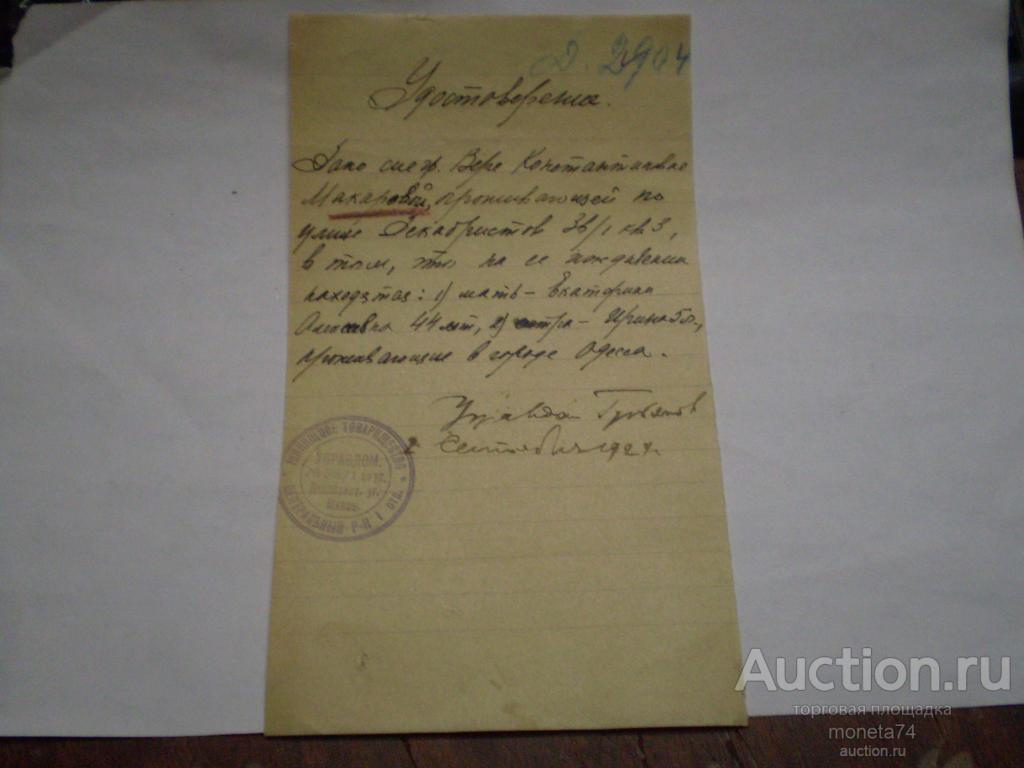 Д. 2904
Удостоверение.
Дано сие гр. Вере Константиновне
Макаровой, проживающей по
улице Декабристов 36/1 кв. 3,
в том, что на ее иждивении
находятся: 1) мать – Екатерина
44 лет, 2) сестра – Ирина
проживающие в городе Одесса.
Управдом
Сентября 192
ЖИЛИЩНОЕ ТОВАРИЩЕСТВО
УПРАВДОМ.
ЦЕНТРАЛЬНЫЙ Р-Н 1 отд.
Auction.ru
торговая площадка
moneta74
auction.ru